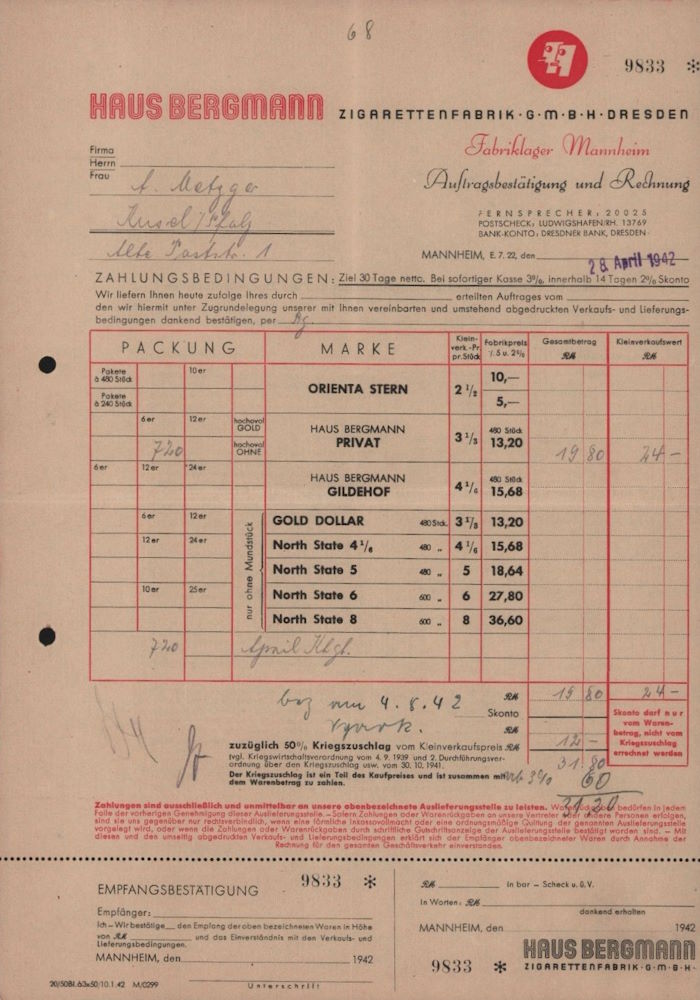 68
9833 *
HAUS BERGMANN ZIGARETTENFABRIK·G·M·B·H·DRESDEN
Fabriklager Mannheim
Auftragsbestätigung und Rechnung
Firma
Herrn
Frau
A. Metzger
Kusel/Pfalz
Alte Poststr. 1
FERNSPRECHER: 20025
POSTSCHECK: LUDWIGSHAFEN/RH. 13769
BANK-KONTO: DRESDNER BANK, DRESDEN
MANNHEIM, E. 7. 22, den 28. April 1942
ZAHLUNGSBEDINGUNGEN: Ziel 30 Tage netto. Bei sofortiger Kasse 3%, innerhalb 14 Tagen 2% Skonto
Wir liefern Ihnen heute zufolge Ihres durch erteilten Auftrages vom
den wir hiermit unter Zugrundelegung unserer mit Ihnen vereinbarten und umstehend abgedruckten Verkaufs- und Lieferungs-
bedingungen dankend bestätigen, per
PACKUNG MARKE Klein-verk.-Pr. pr. Stück Fabrikpreis ./. 5 u. 2% Gesamtbetrag RM Kleinverkaufswert RM
Pakete à 480 Stück 10er
ORIENTA STERN 2 1/2 10,—
Pakete à 240 Stück 5,—
6er 12er hochoval GOLD HAUS BERGMANN 480 Stück
720 hochoval OHNE PRIVAT 3 1/3 13,20 19 80 24 —
6er 12er 24er HAUS BERGMANN 480 Stück
GILDEHOF 4 1/6 15,68
6er 12er nur ohne Mundstück GOLD DOLLAR 480 Stck. 3 1/3 13,20
12er 24er North State 4 1/6 480 „ 4 1/6 15,68
North State 5 480 „ 5 18,64
10er 25er North State 6 600 „ 6 27,80
North State 8 600 „ 8 36,60
720 April
RM 19 80 24 —
bez am 4. 5. 42
Skonto
Skonto darf nur vom Waren-betrag, nicht vom Kriegszuschlag errechnet werden
zuzüglich 50% Kriegszuschlag vom Kleinverkaufspreis RM 12 —
(vgl. Kriegswirtschaftsverordnung vom 4. 9. 1939 und 2. Durchführungsver-
ordnung über den Kriegszuschlag usw. vom 30. 10. 1941.
31.80
Der Kriegszuschlag ist ein Teil des Kaufpreises und ist zusammen mit
dem Warenbetrag zu zahlen.
3% 60
31.20
Zahlungen sind ausschließlich und unmittelbar an unsere obenbezeichnete Auslieferungsstelle zu leisten. Warenrückgaben bedürfen in jedem
Falle der vorherigen Genehmigung dieser Auslieferungsstelle. — Sofern Zahlungen oder Warenrückgaben an unsere Vertreter oder andere Personen erfolgen,
sind sie uns gegenüber nur rechtsverbindlich, wenn eine förmliche Inkassovollmacht oder eine ordnungsmäßige Quittung der genannten Auslieferungsstelle
vorgelegt wird, oder wenn die Zahlungen oder Warenrückgaben durch schriftliche Gutschriftsanzeige der Auslieferungsstelle bestätigt worden sind. — Mit
diesen und den umseitig abgedruckten Verkaufs- und Lieferungsbedingungen erklärt sich der Empfänger obenbezeichneter Waren durch Annahme der
Rechnung für den gesamten Geschäftsverkehr einverstanden.
EMPFANGSBESTÄTIGUNG 9833 *
Empfänger:
Ich – Wir bestätige den Empfang der oben bezeichneten Waren in Höhe
von RM und das Einverständnis mit den Verkaufs- und
Lieferungsbedingungen.
MANNHEIM, den 1942
20/50Bl. 63x50/10.1.42 M/0299
Unterschrift
RM in bar – Scheck u. G. V.
In Worten: RM
dankend erhalten
MANNHEIM, den 1942
HAUS BERGMANN
9833 * ZIGARETTENFABRIK·G·M·B·H·